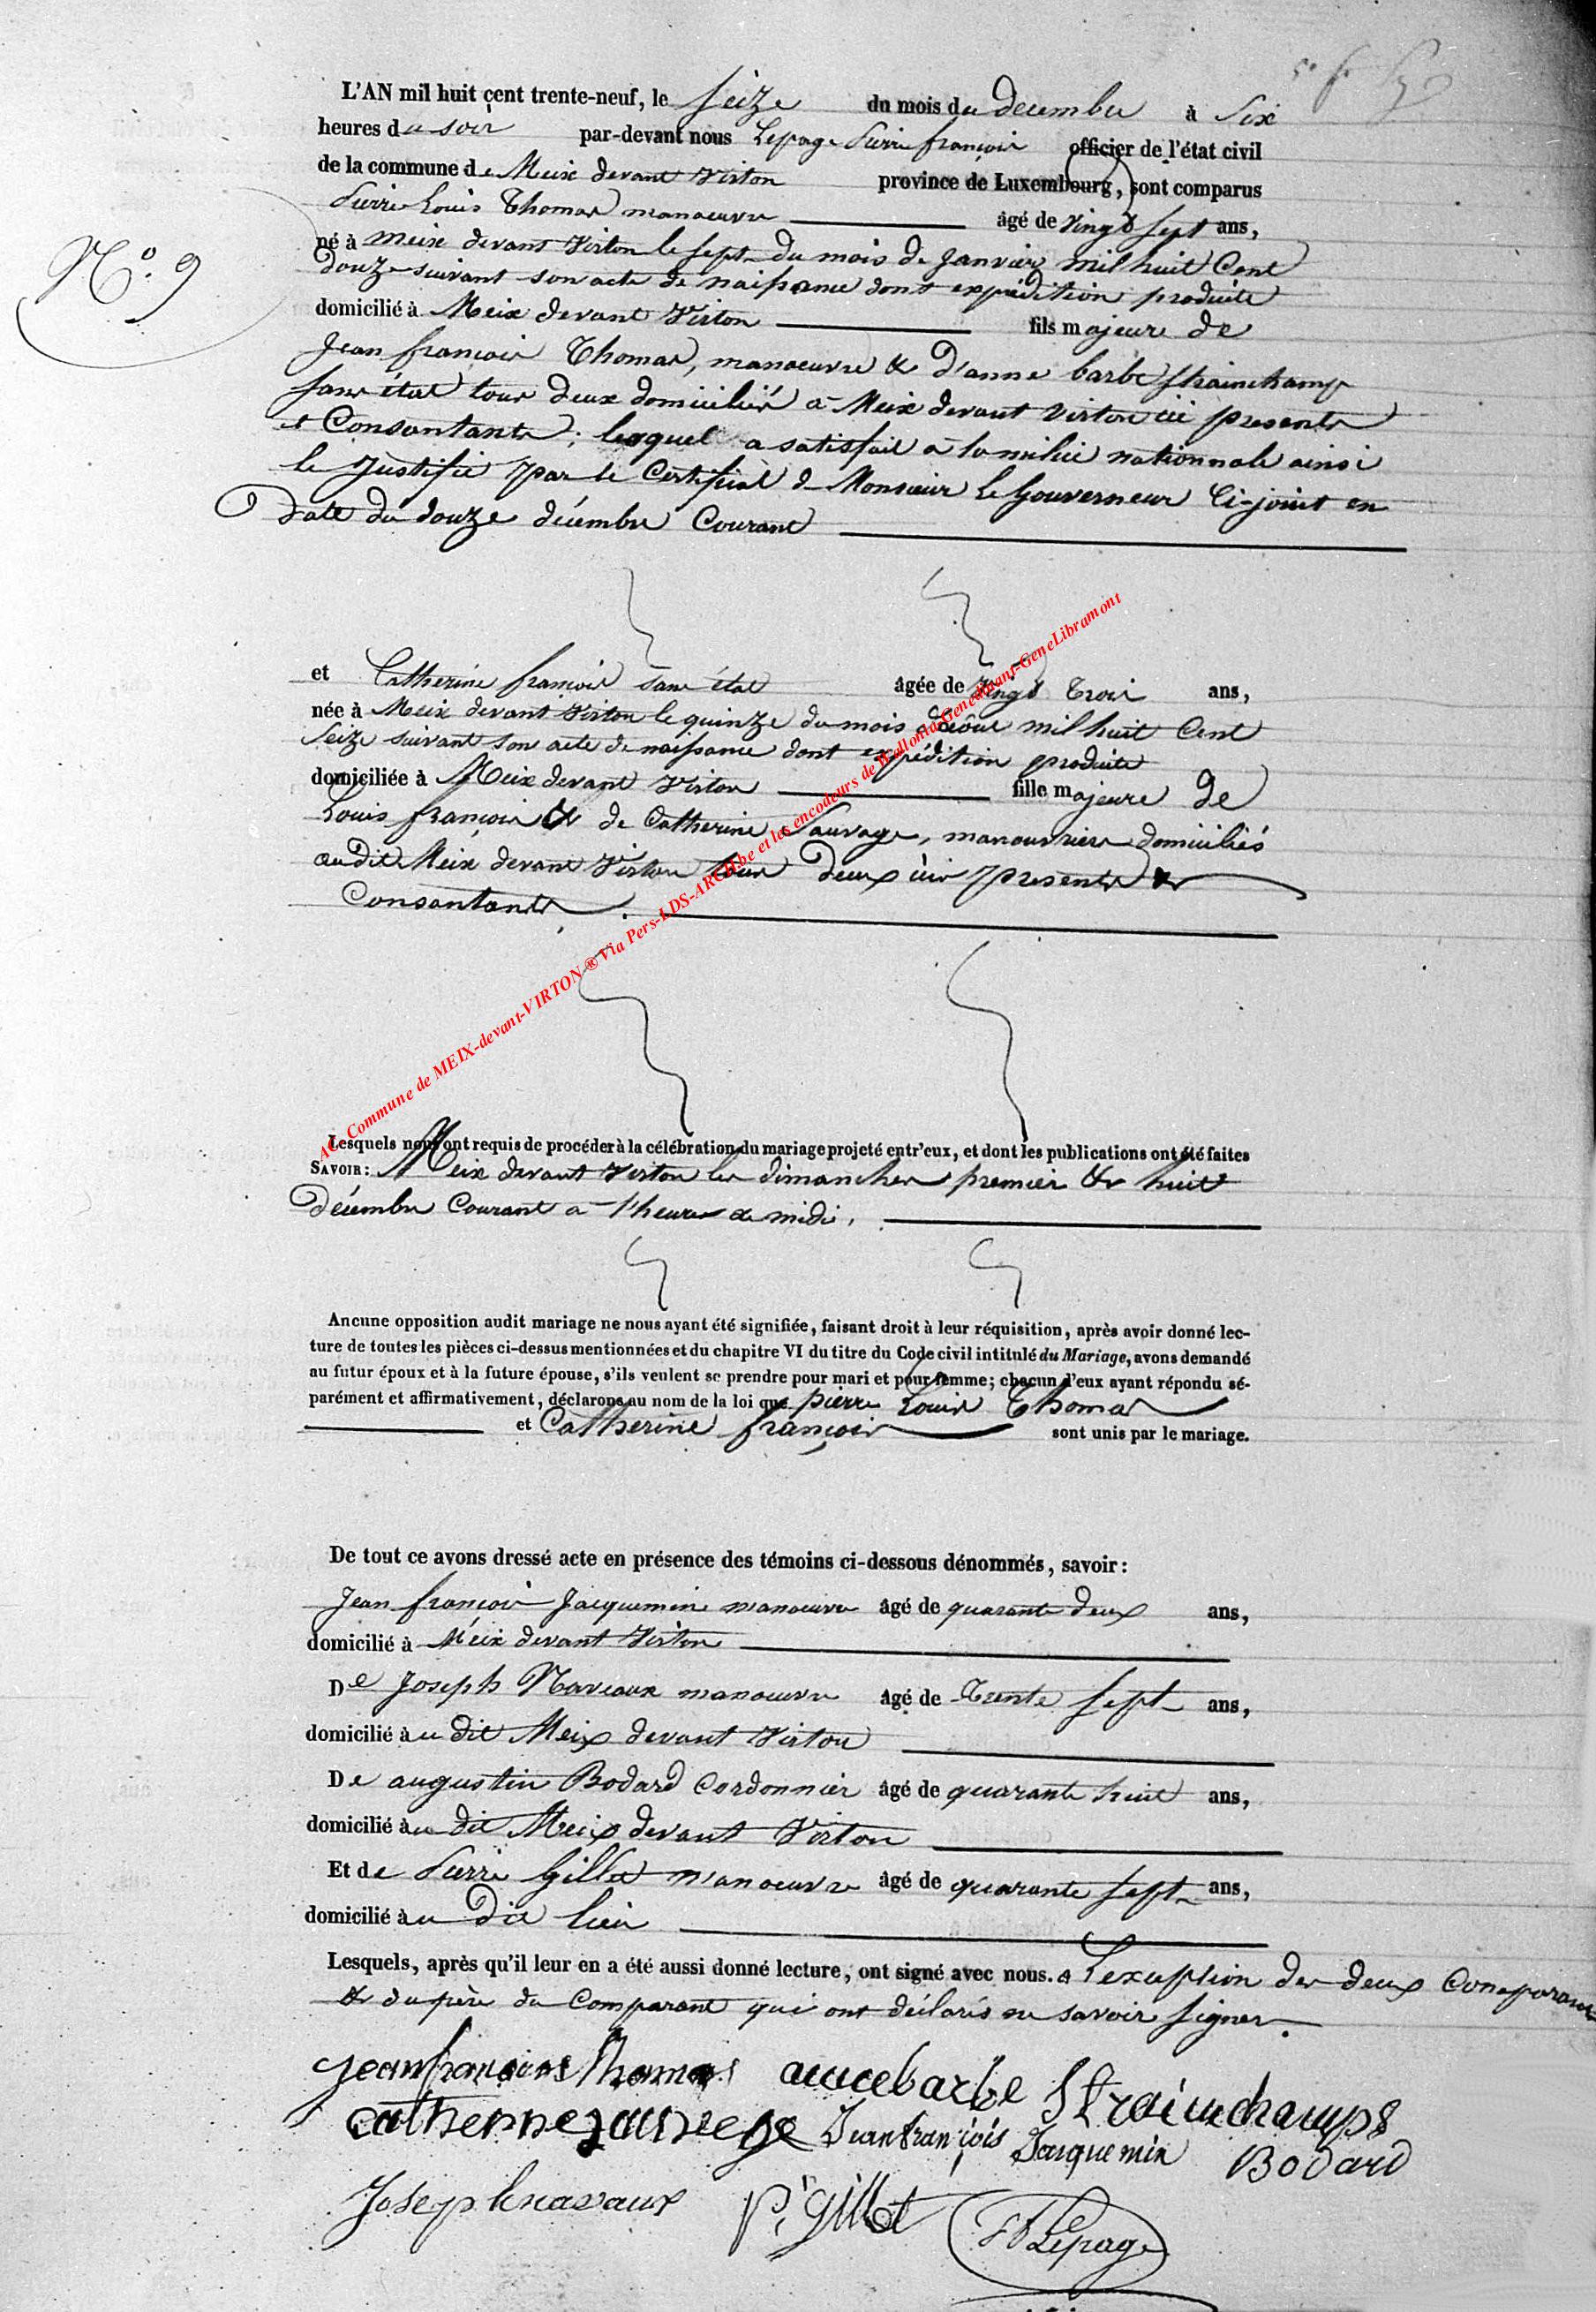 L'AN mil huit cent trente-neuf, le seize du mois de decembre à six
heures du soir par-devant nous Lepage Pierre françois officier de l'état civil
de la commune de Meix devant Virton province de Luxembourg, sont comparus
Pierre Louis Thomas manoeuvre âgé de vingt sept ans,
N.º 9
né à meix devant Virton le sept du mois de janvier mil huit Cent
douze suivant son acte de naissance dont expédition produite
domicilié à Meix devant Virton fils majeur de
Jean françois Thomas, manoeuvre & d'anne barbe strainchamp
sans état tous deux domiciliés à Meix devant virton ici presents
et Consantants; lesquel a satisfait à la milice nationnale ainsi
le justifie par le Certificat de Monsieur Le Gouverneur Ci-joint en
date du douze décembre Courant
et Catherine françois sans état âgée de vingt trois ans,
née à Meix devant Virton le quinze du mois d'août mil huit Cent
seize suivant son acte de naissance dont expédition produite
domiciliée à Meix devant Virton fille majeure de
Louis françois & de Catherine Sauvage, manouvriers domiciliés
audit Meix devant Virton tous deux ici presents &
Consantants.
AC Commune de MEIX-devant-VIRTON ® Via Pers-LDS-ARCH.be et les encodeurs de Wallonia-Genedinant-GeneLibramont
Lesquels nous ont requis de procéder à la célébration du mariage projeté entr'eux, et dont les publications ont été faites
SAVOIR: Meix devant Virton les dimanches premier & huit
décembre Courant a l'heure de midi,
Aucune opposition audit mariage ne nous ayant été signifiée, faisant droit à leur réquisition, après avoir donné lec-
ture de toutes les pièces ci-dessus mentionnées et du chapitre VI du titre du Code civil intitulé du Mariage, avons demandé
au futur époux et à la future épouse, s'ils veulent se prendre pour mari et pour femme; chacun d'eux ayant répondu sé-
parément et affirmativement, déclarons au nom de la loi que pierre Louis Thomas
et Catherine françois sont unis par le mariage.
De tout ce avons dressé acte en présence des témoins ci-dessous dénommés, savoir:
Jean françois Jacquemin manoeuvre âgé de quarante deux ans,
domicilié à Meix devant Virton
De Joseph Navaux manoeuvre âgé de trente sept ans,
domicilié au dit Meix devant Virton
De augustin Bodard Cordonnier âgé de quarante huit ans,
domicilié au dit Meix devant Virton
Et de Pierre Gillet manoeuvre âgé de quarante sept ans,
domicilié au dit lieu
Lesquels, après qu'il leur en a été aussi donné lecture, ont signé avec nous. a l'exception des deux Comparants
& du père du Comparant qui ont déclarés ne savoir signer.
jeanfrancois thomas annebarbe Strainchamps
catherinne sauvege Jeanfrançois Jacquemin Bodard
Joseph navaux P. Gillet Lepage